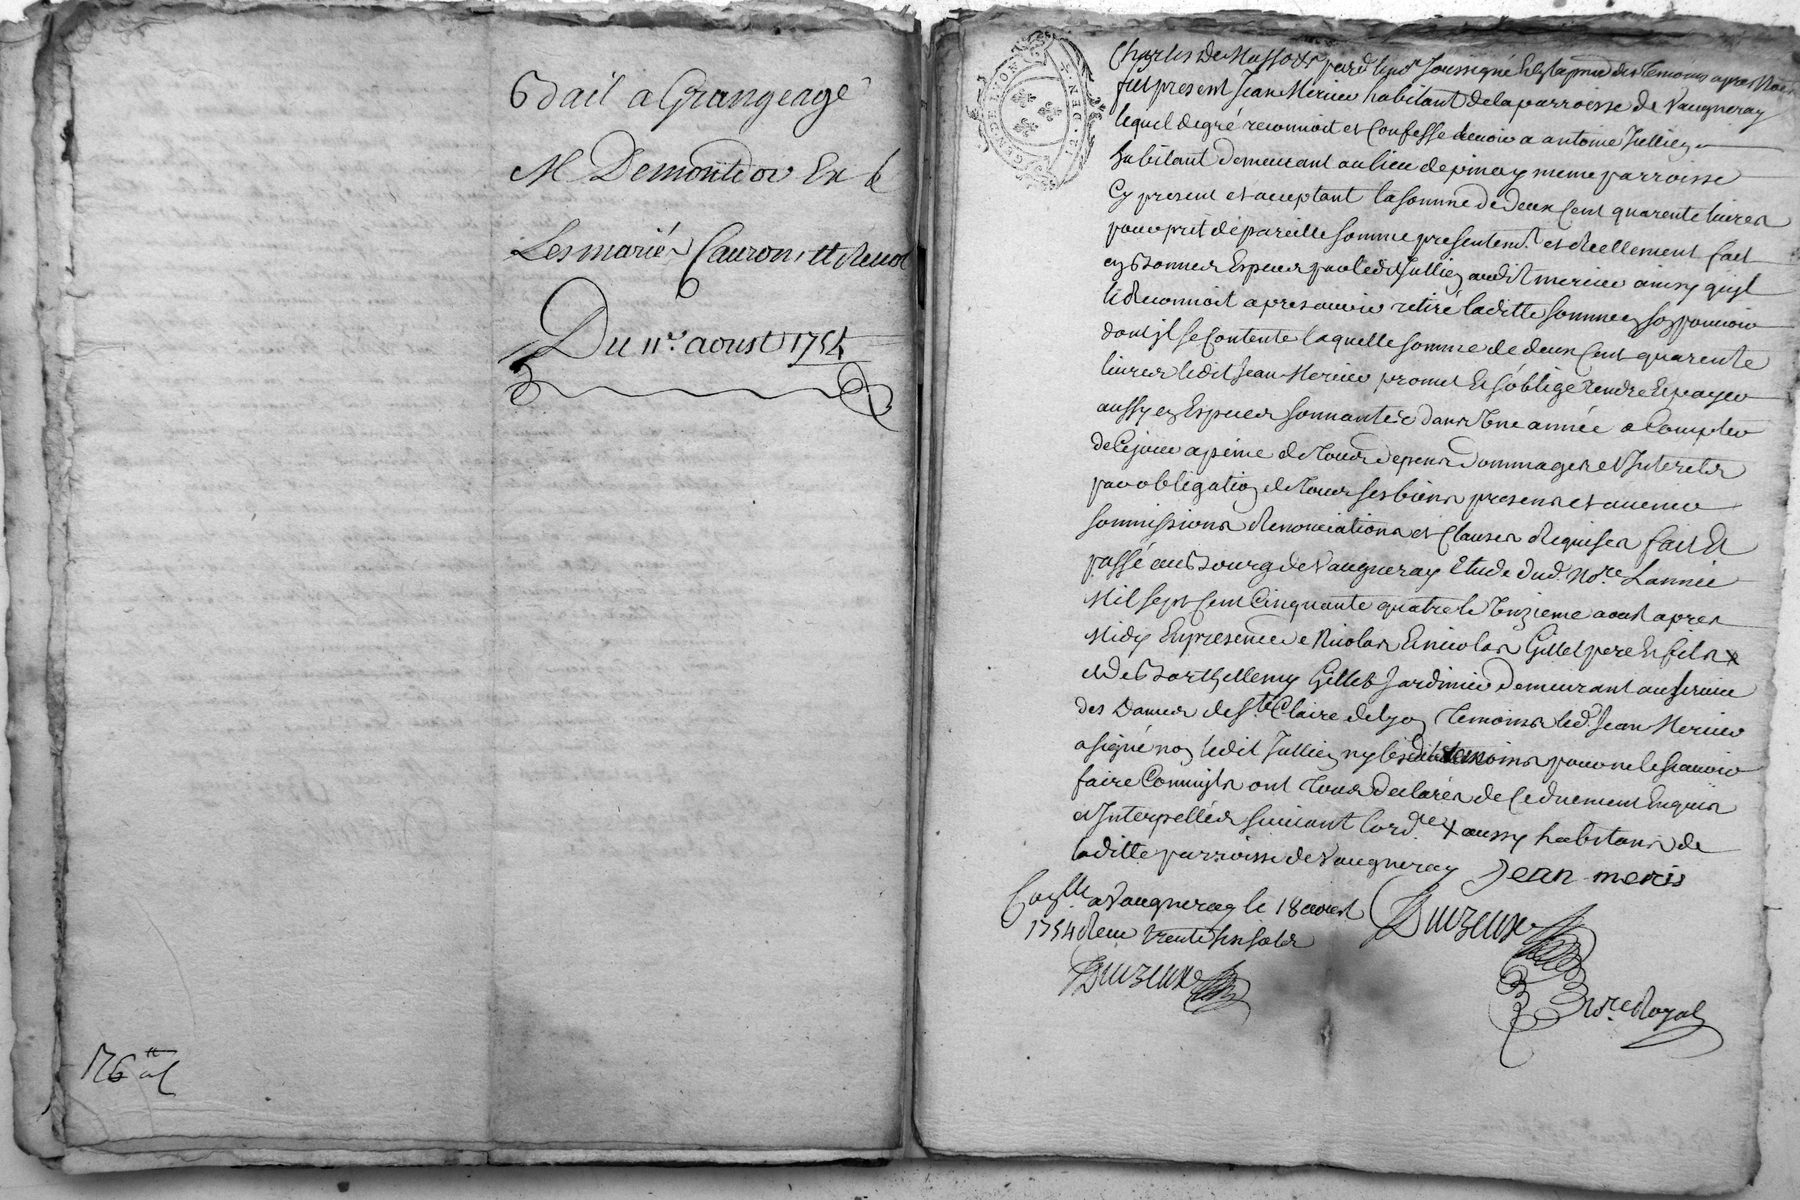 Bail a Grangeage
M Demontdor Et
Les mariés Cauron, et
Du 11e. aoust 1754
176
GEN DE LYON
Charles De Masso par devt soussigné et en la presence des temoins apres
fut present Jean Merieu habitant de la parroisse de Vaugneray
lequel de gré reconnoit et Confesse devoir a antoine Jullien
habitant demeurant au lieu de pinay meme parroisse
Cy present et acceptant la somme de deux Cent quarente livres
pour pret de pareille somme presentemt. et Reellement fait
en bonnes Especes par ledit Jullien audit merieu ainsy quyl
le Reconnoit apres avoir retiré laditte somme en son pouvoir
dont yl se Contente laquelle somme de deux Cent quarente
livres ledit Jean Merieu promet et s'oblige rendre et payer
aussy en Especes sonnantes dans Une année a Compter
de Cejour a peine de Tous depens dommages et Interets
par obligation de Tous ses biens presens et avenir
sommissions Renonciations et Clauses Requises fait et
passé au Bourg de Vaugneray Etude dud. no.re Lannée
Mil sept Cent Cinquante quatre le Onzieme aoust apres
Midy En presence de Nicolas Et nicolas Gillet pere et fils x
et de Barthellemy Gillet Jardinier demeurant au service
des Dames de Ste Claire de Lyon Temoins led. Jean Merieu
a signé non ledit Jullien ny lesdits temoins pour ne le scavoir
faire Comm'yls ont Tous declarés de Ce duement Enquis
et Interpellés suivant l'ord.ce x aussy habitans de
laditte parroisse de Vaugneray Jean meris
Con.llé a Vaugneray le 18 aoust
1754 Reçu trente six sols
Duizeux
no.re Royal
Duizeux